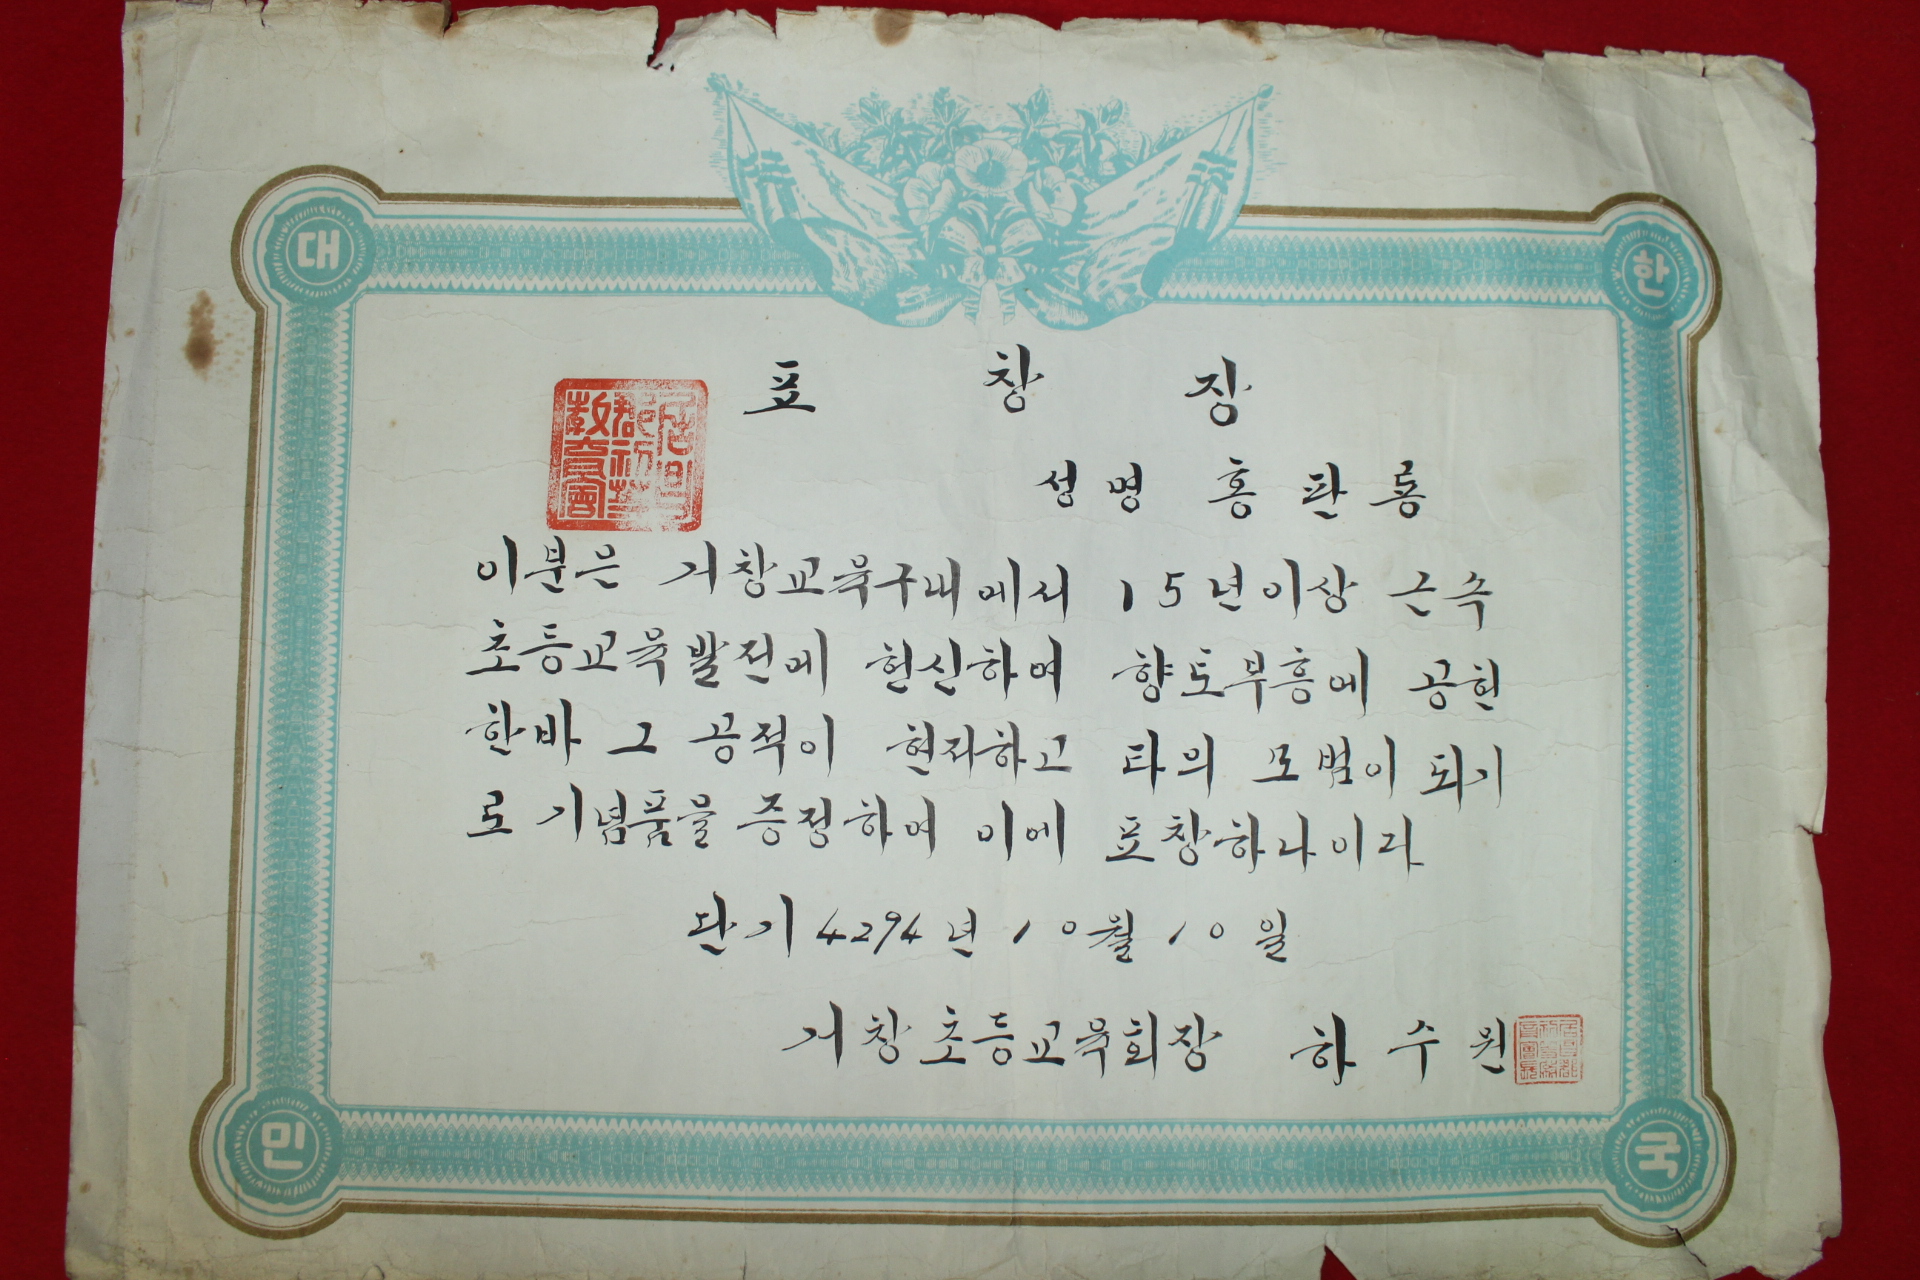 대 한
표 창 장
성명 홍판룡
이분은 거창교육구내에서 15년이상 근속
초등교육발전에 헌신하여 향토부흥에 공헌
한바 그 공적이 현저하고 타의 모범이 되기
로 기념품을 증정하여 이에 표창하나이다
단기 4294년 10월 10일
거창초등교육회장 하수원
민 국
居昌郡初等教育會